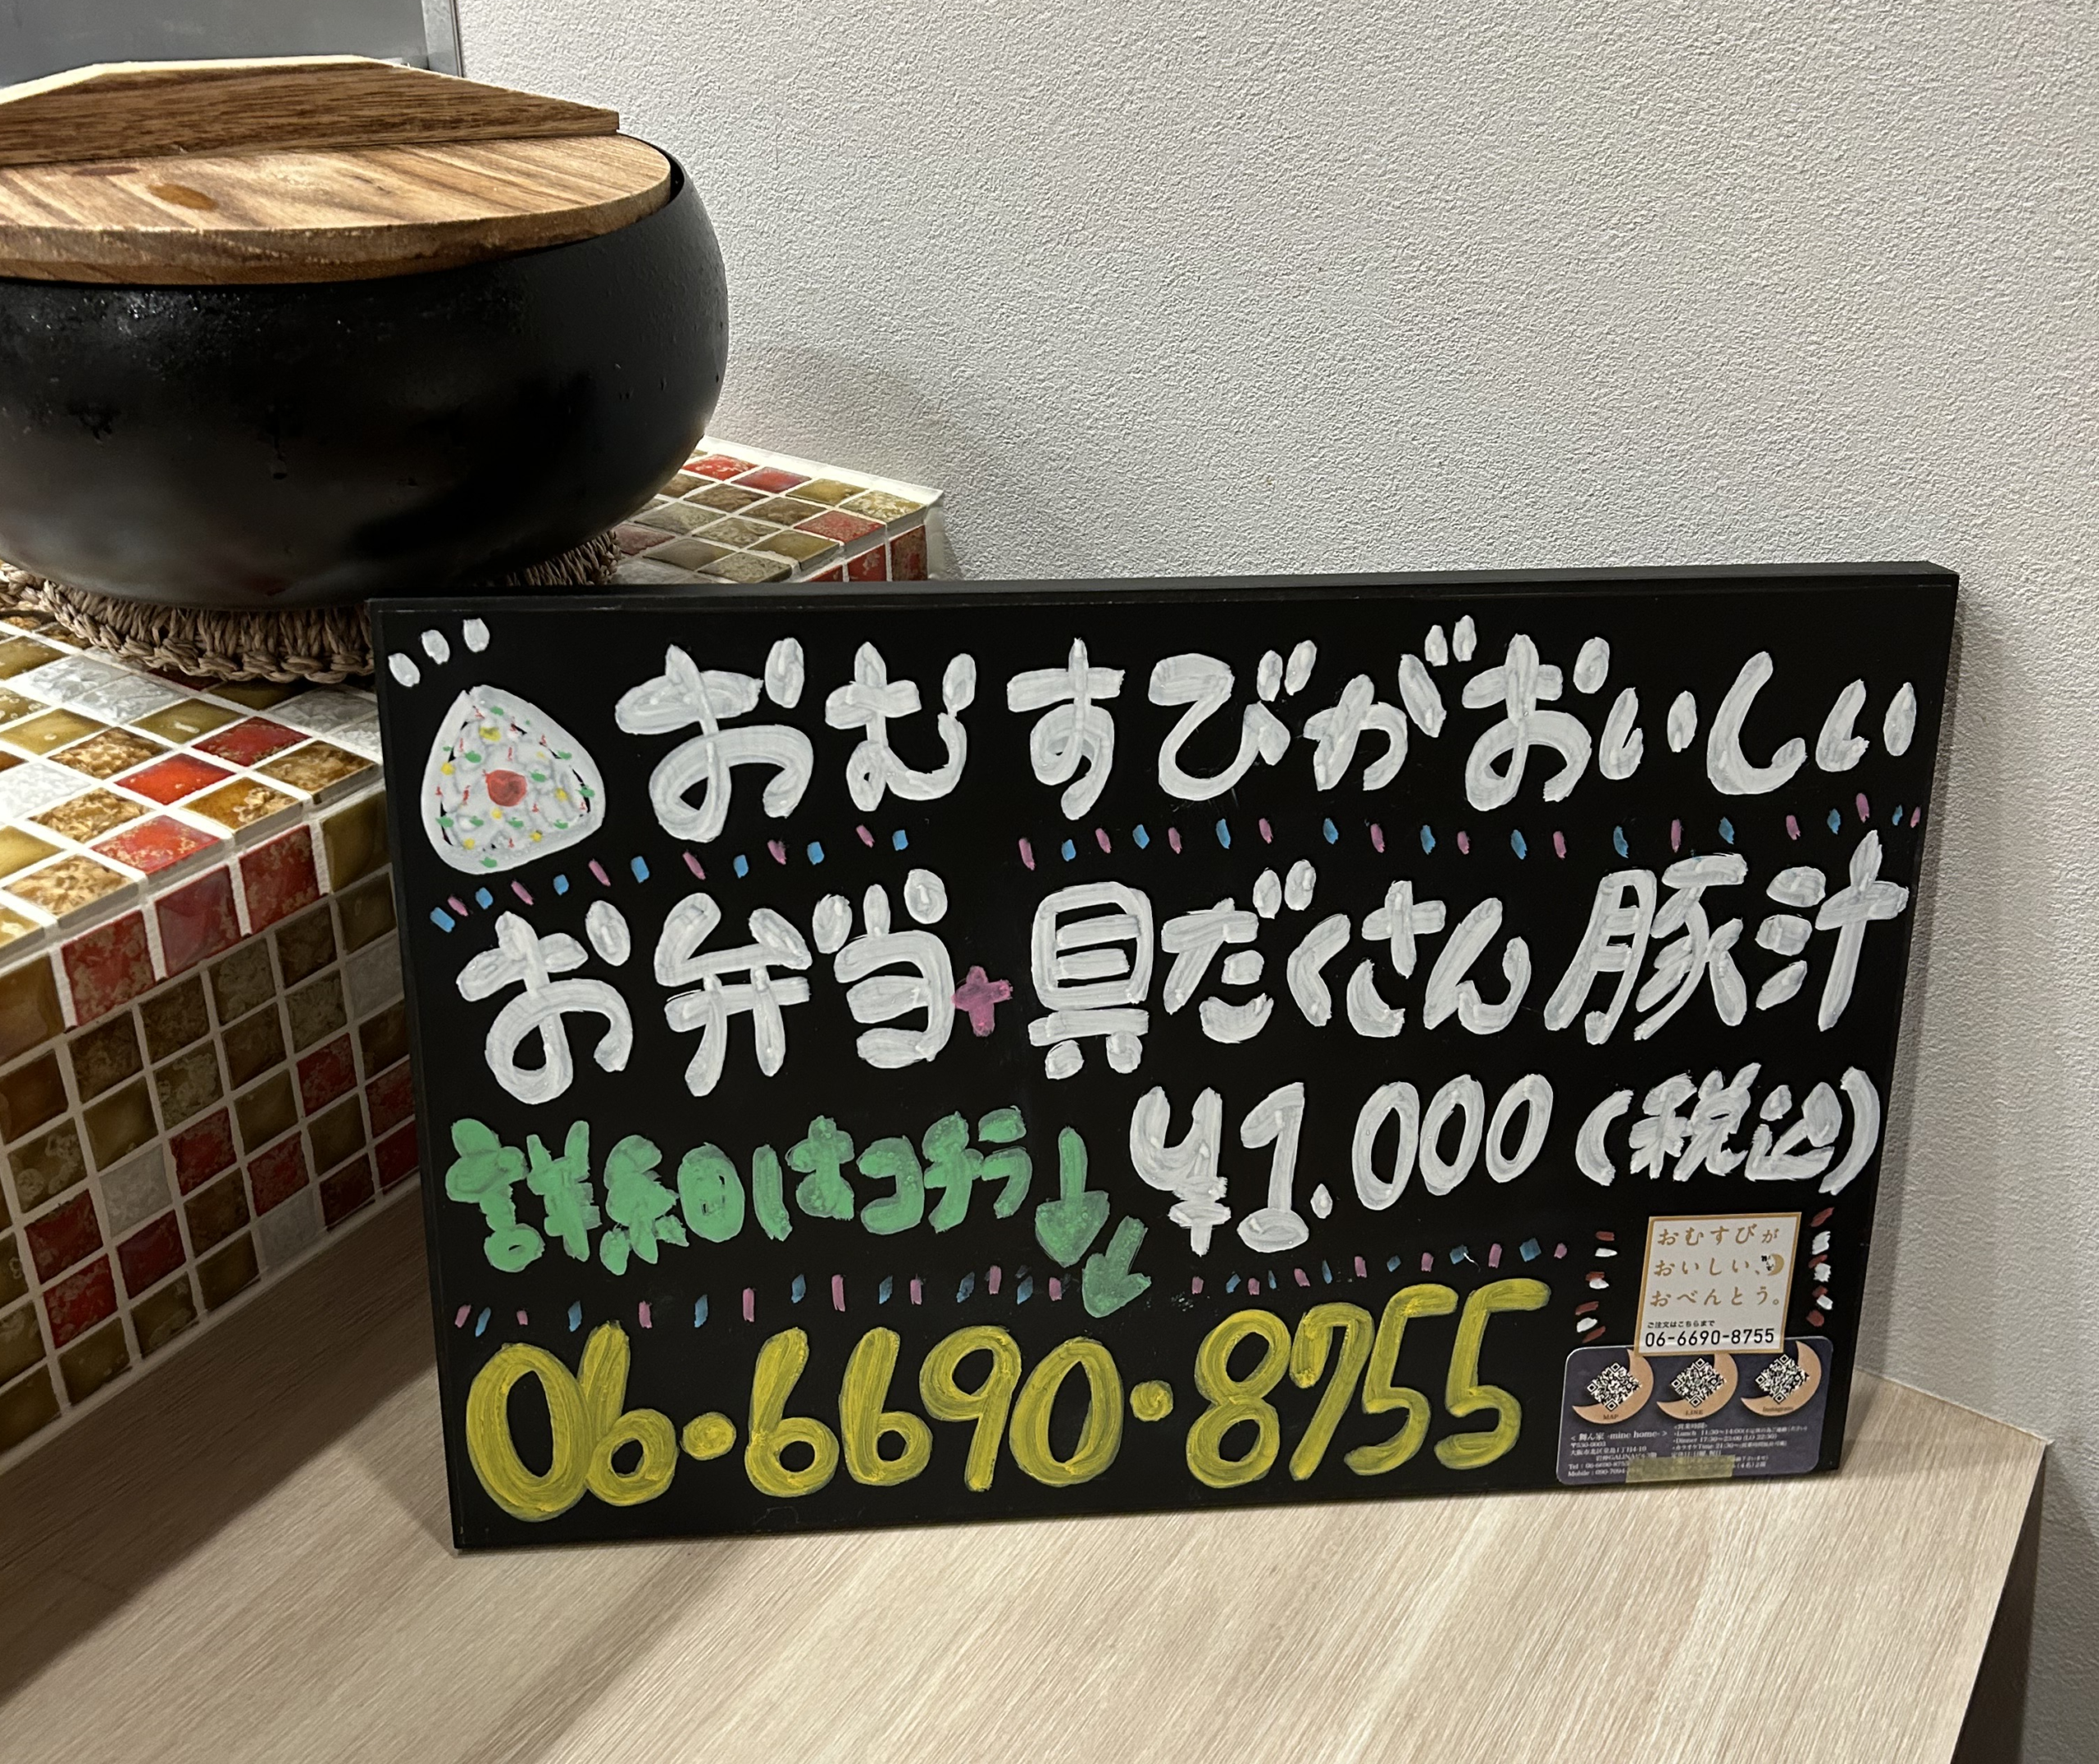 おむすびがおいしい
お弁当+具だくさん豚汁
¥1.000(税込)
詳細はコチラ↓
06-6690-8755
おむすびが
おいしい、
おべんとう。
ご注文はこちらまで
06-6690-8755
MAP
LINE
Instagram
-mine home-